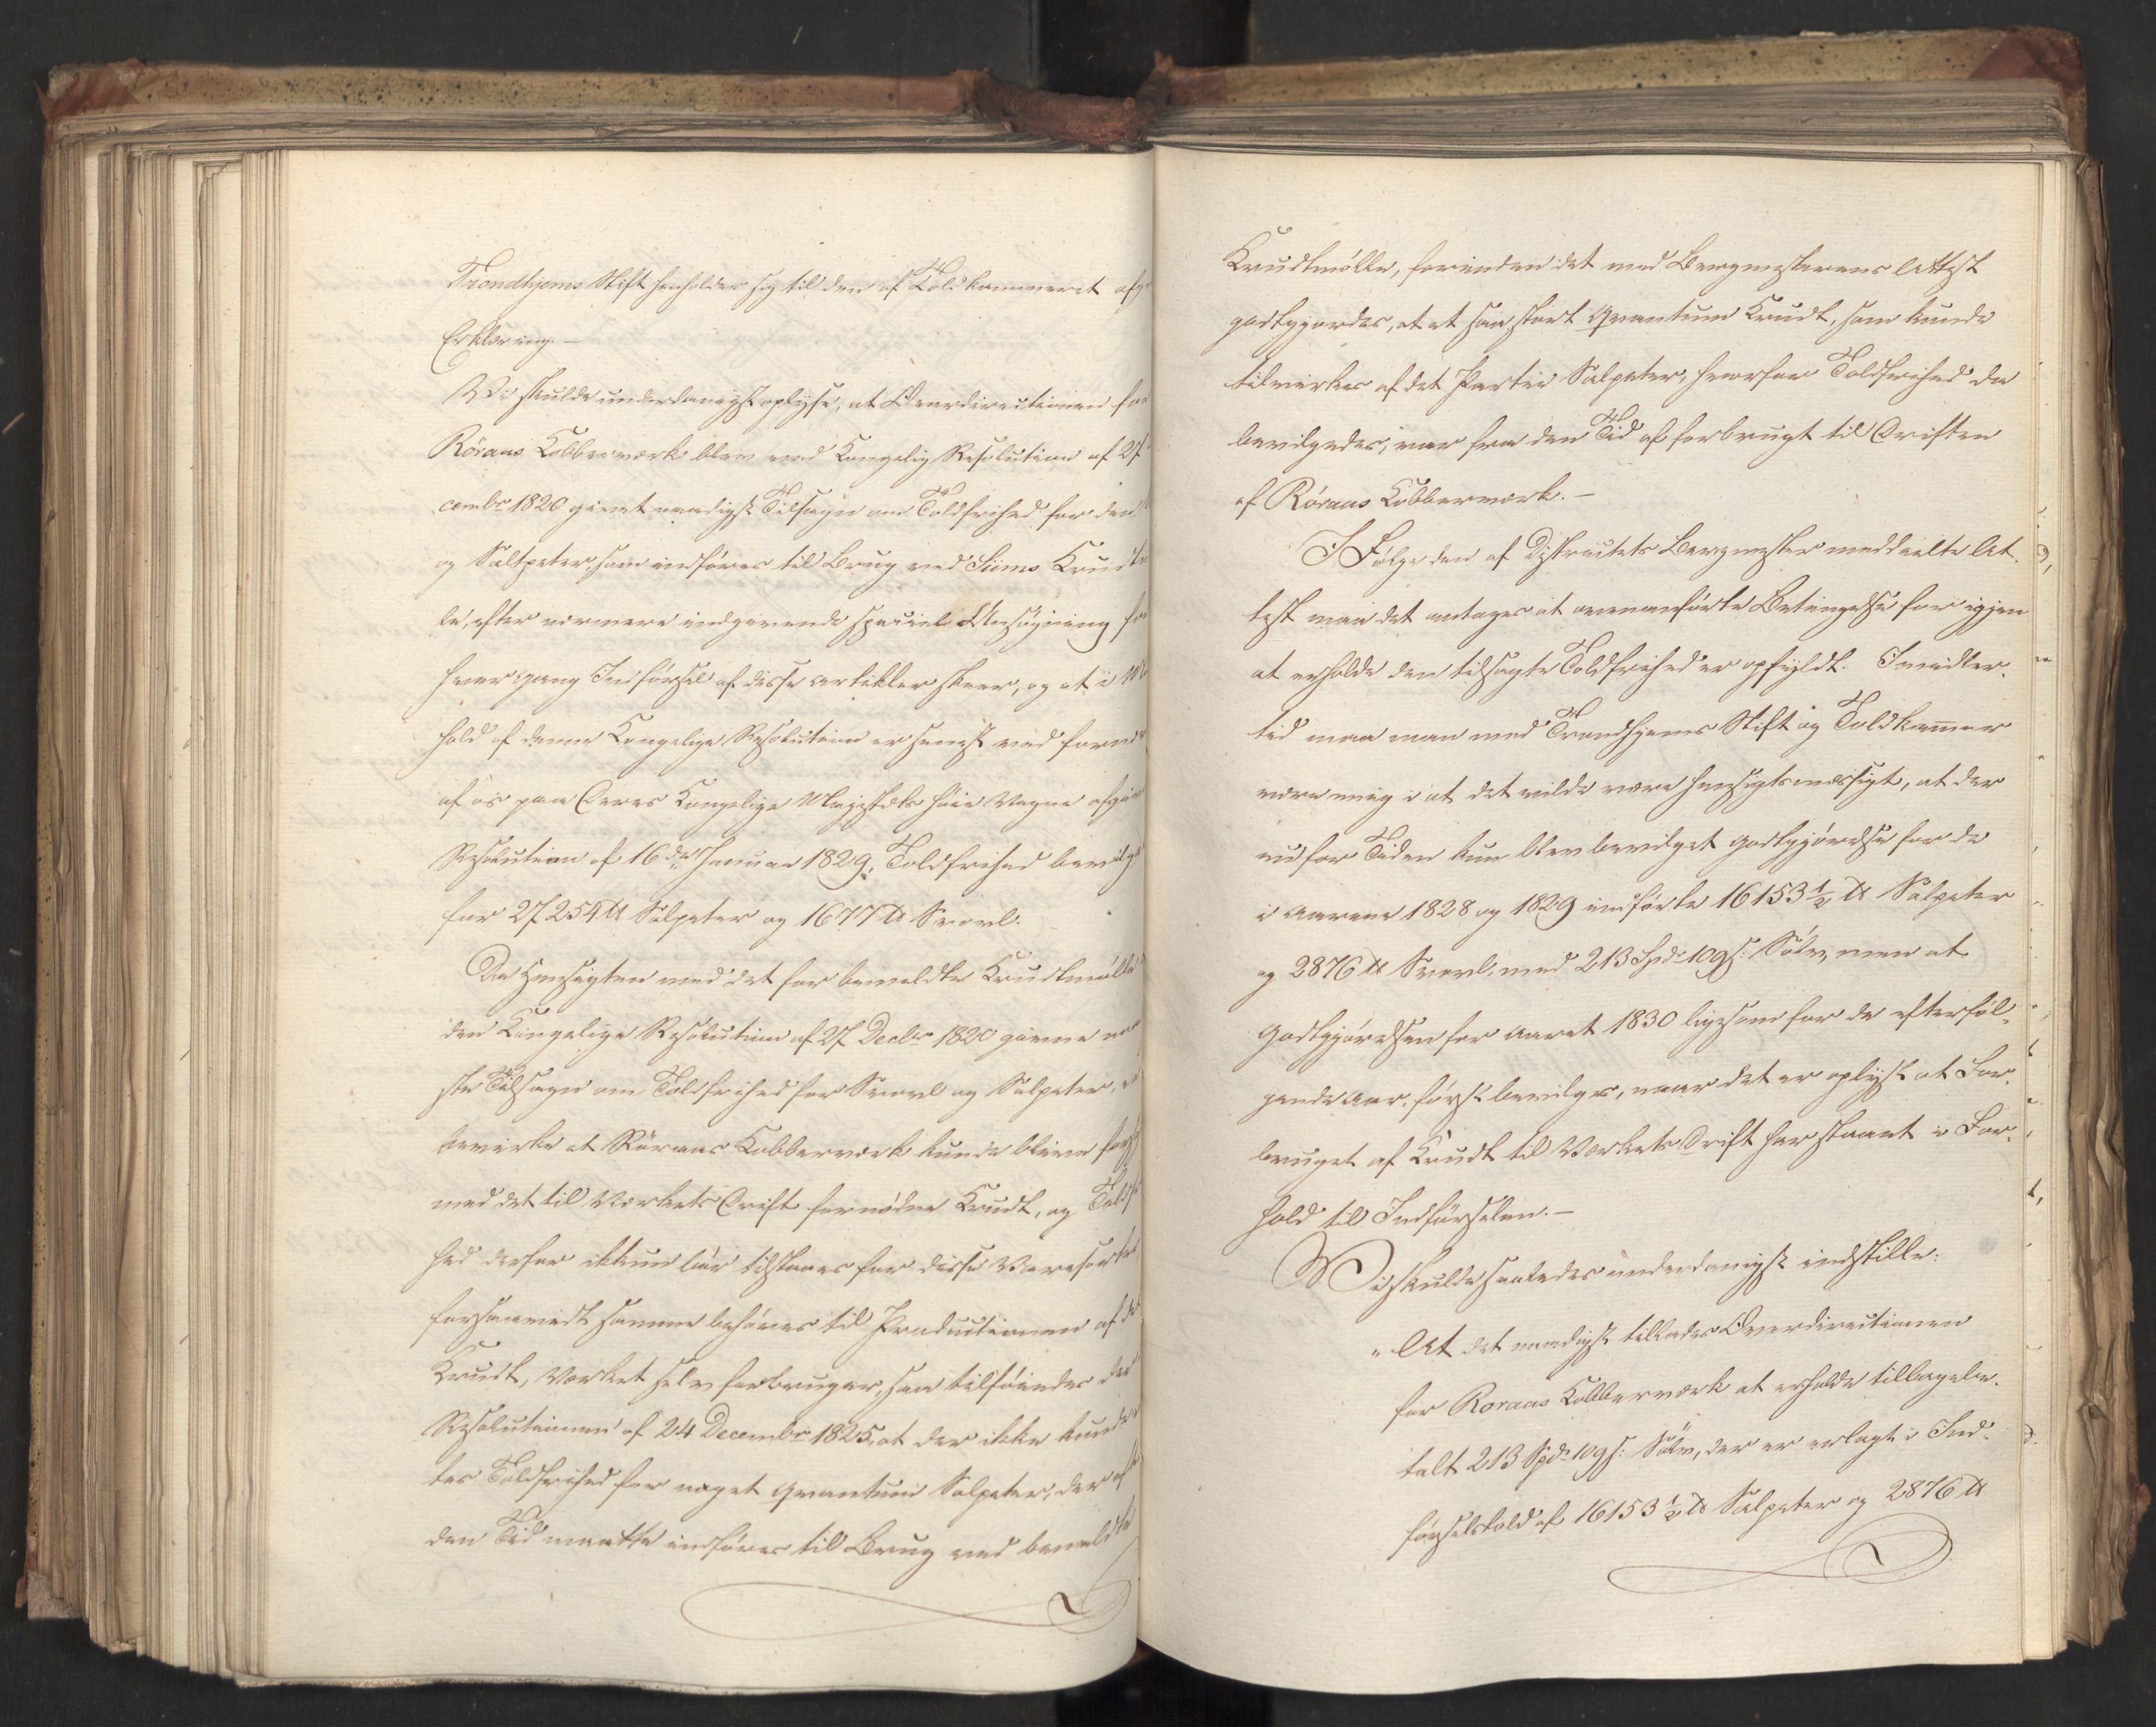 Trondhjems Stift henholder sig til den af Toldkammeret afg
Erklæring. –
Vi skulde underdanigst oplyse, at Overdirectionen for
Röraas Kobberværk blev ved Kongelig Resolution af 27
cembr 1820 givet naadigst Tilsagn om Toldfrihed for den
og Saltpeter, som indføres til Brug ved Siems Krudtm
le, efter nærmere indgivende speciel Ansøgning for
hver Gang Indførsel af disse Artikler skeer, og at i
hold af denne Kongelige Resolution er senest ved
af os paa Deres Kongelige Majestæts høie Vegne afgiv
Resolution af 16de Januar 1829, Toldfrihed bevilg
for 27254 ℔ Salpeter og 1677 ℔ Svovl.
Da Hensigten med det for bemeldte Krudtmølle
den Kongelige Resolution af 27 Decbr 1820 givne na
ste Tilsagn om Toldfrihed for Svovl og Salpeter,
bevirke at Röraas Kobberværk kunde blive fors
med det til Værkets Drift fornødne Krudt, og Toldfri
hed derfor ikkun bør tilstaaes for disse Varesorter
forsaavidt samme behøves til Productionen af det
Krudt, Værket selv forbruger, saa tilføiedes det
Resolutionen af 24 Decembr 1825, at der ikke kunde
tes Toldfrihed for noget Qvantum Salpeter, der ef
den Tid maatte indføres til Brug ved bemeldte
Krudtmølle, forinden det med Bergmesterens Attest
godtgjordes, at et saa stort Qvantum Krudt, som kunde
tilvirkes af det Partie Salpeter, hvorfor Toldfrihed da
bevilgedes, var fra den Tid af forbrugt til Driften
af Röraas Kobberværk. –
I Følge den af Districtets Bergmester meddeelte At-
test maa det antages at ovenanførte Betingelse for igjen
at erholde den tilsagte Toldfrihed er opfyldt. Imidler-
tid maa man med Trondhjems Stift og Toldkammer
være enig i at det vilde være hensigtsmæssigt, at der
nu for Tiden kun blev bevilget Godtgjørelse for de
i Aarene 1828 og 1829 indførte 16153½ ℔ Salpeter
og 2876 ℔ Svovl, med 213 Spd. 109 s: Sölv, men at
Godtgjørelsen for Aaret 1830 ligesom for de efterføl-
gende Aar, først bevilges, naar det er oplyst at For-
bruget af Krudt til Værkets Drift har staaet i For-
hold til Indførselen. –
Vi skulde saaledes underdanigst indstille:
„At det naadigst tillades Overdirectionen
for Roraas Kobberværk at erholde tilbagebe-
talt 213 Spd. 109 s: Sölv, der er erlagt i Ind-
førselstold af 16153½ ℔ Salpeter og 2876 ℔